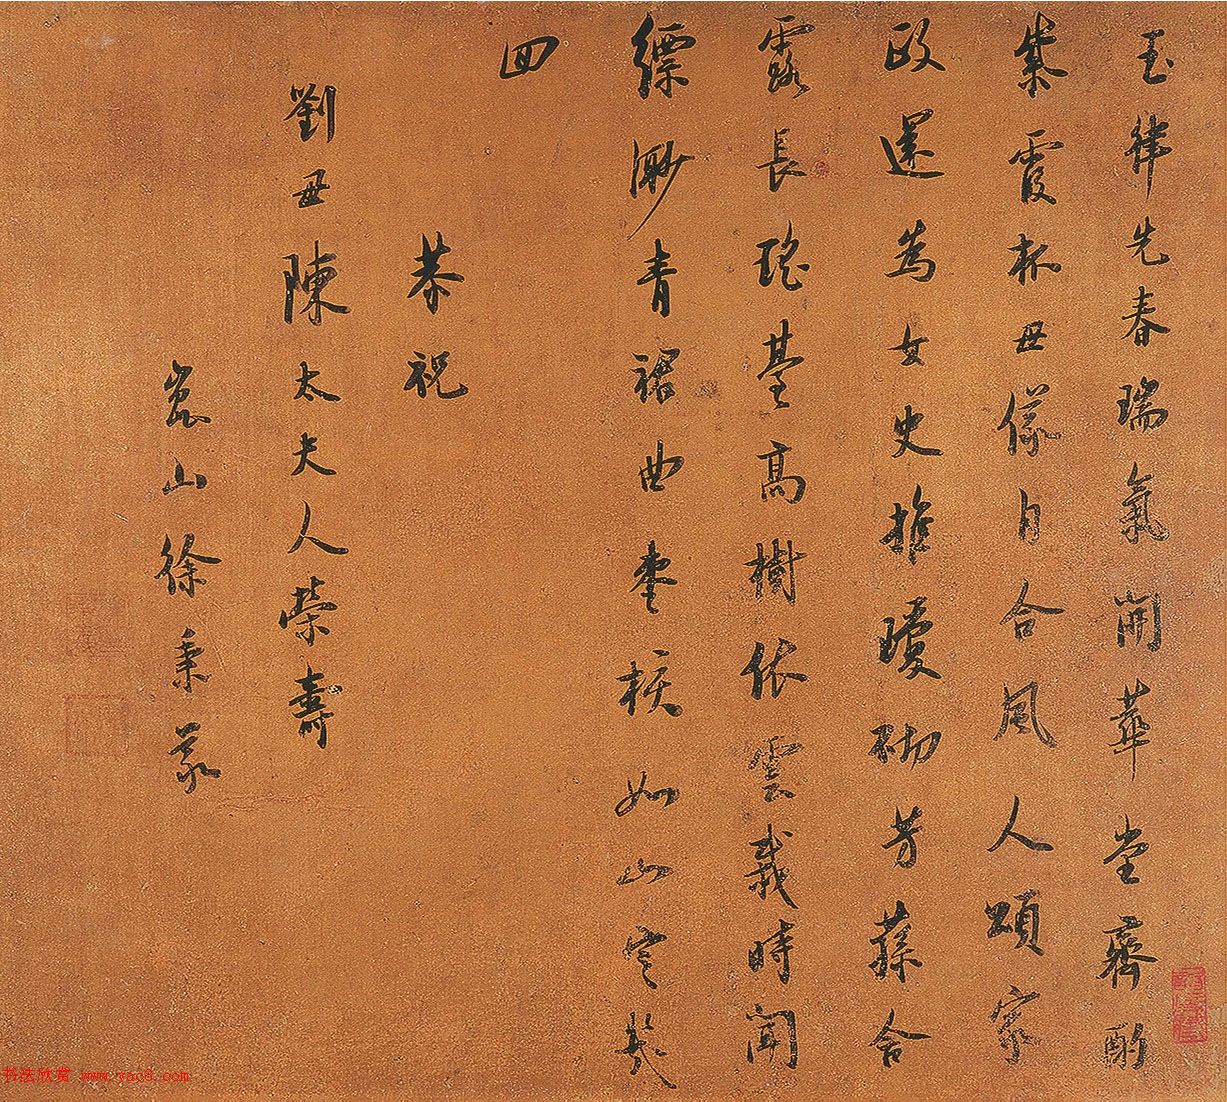 玉律先春瑞氣開華堂齊酌
紫霞杯母儀自合風人頌家
政還為女史推瓊砌芳蓀含
露長瑤臺高樹依雲栽時聞
縹渺青裙曲棗核如山定幾
回
恭祝
劉母陳太夫人榮壽
崑山徐秉義
书法欣赏 www.yac8.com